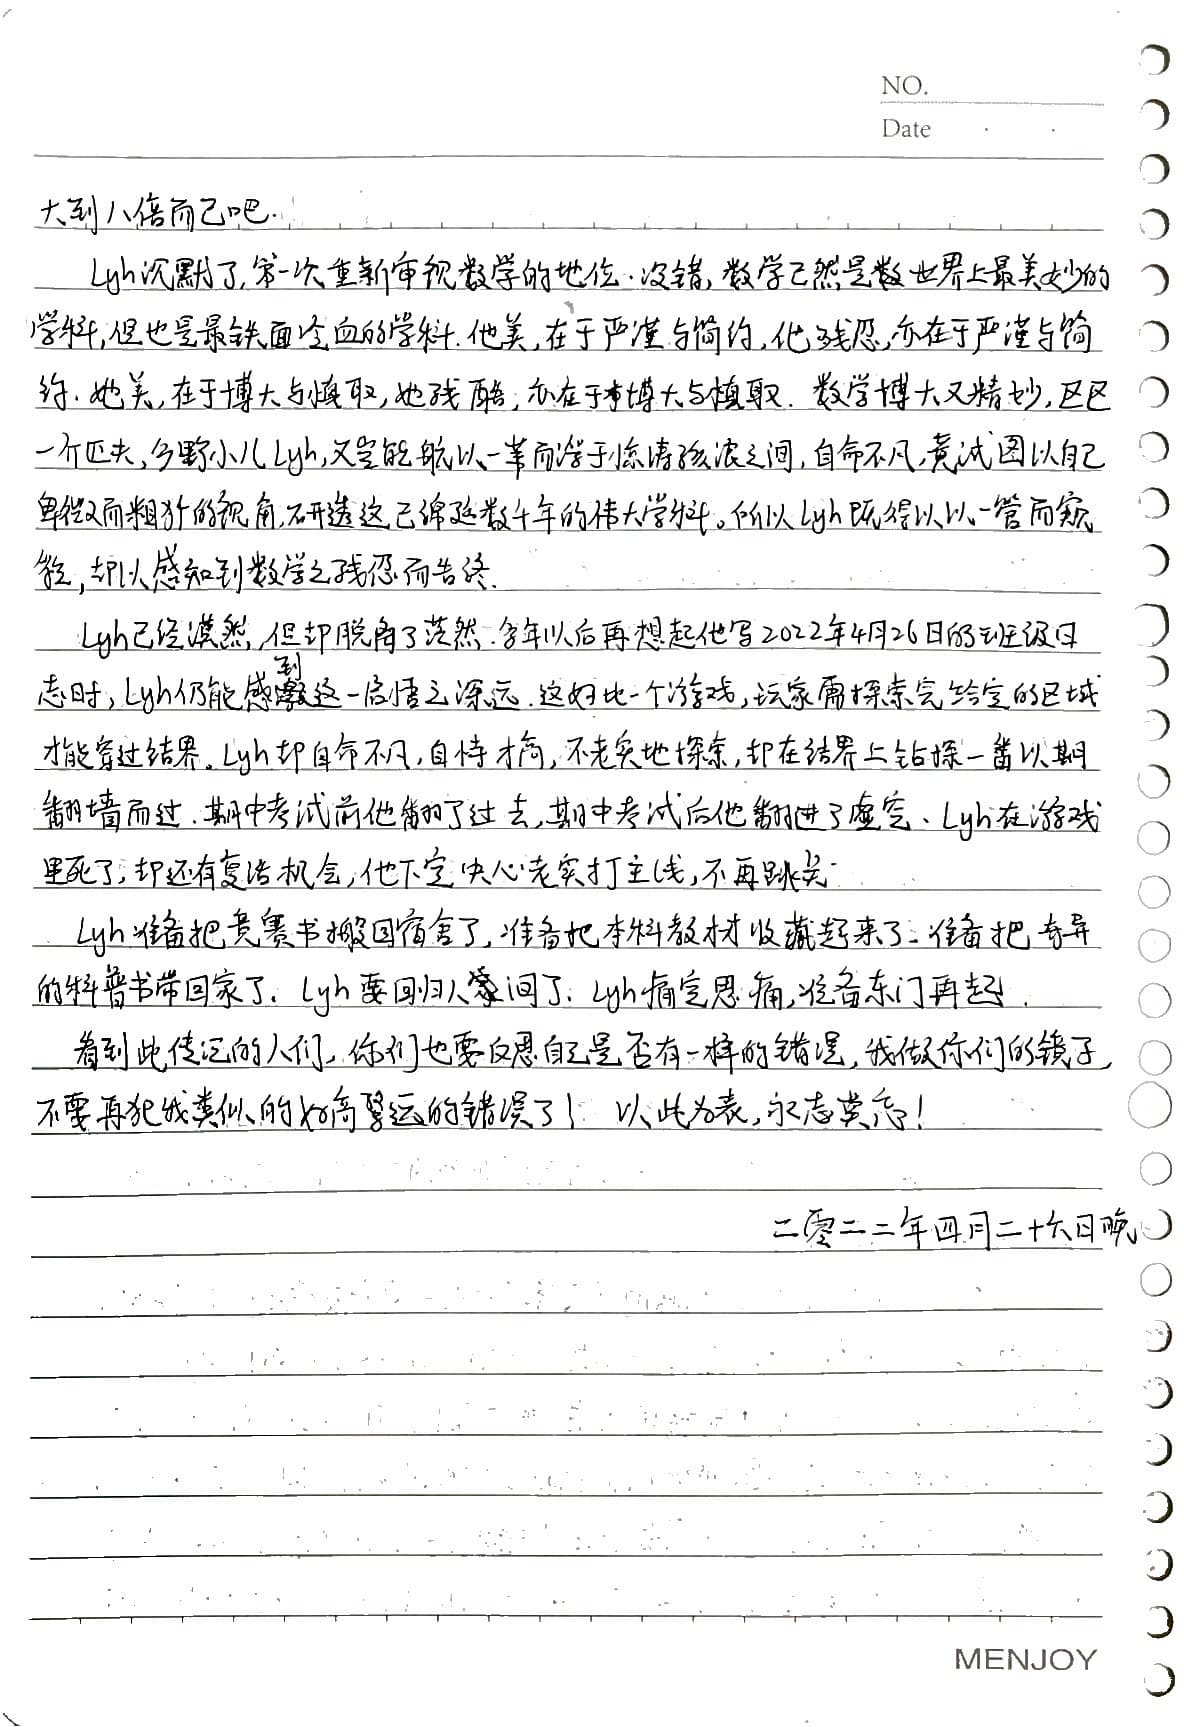 NO.
Date
大到八倍而已吧.
Lyh沉默了,第一次重新审视数学的地位.没错,数学已然是数世界上最美妙的
学科,但也是最铁面冷血的学科.他美,在于严谨与简约,他残忍,亦在于严谨与简
约.她美,在于博大与慎取,她残酷,亦在于博大与慎取.数学博大又精妙,区区
一介匹夫,乡野小儿Lyh,又岂能航以一苇而浮于惊涛骇浪之间,自命不凡,竟试图以自己
卑微又而粗犷的视角,研透这已绵延数千年的伟大学科。所以Lyh既得以以一管而窥
貌,却以感知到数学之残忍而告终.
Lyh已经漠然,但却脱离了茫然.多年以后再想起他写2022年4月26日的班级日
志时,Lyh仍能感到这一启悟之深远.这好比一个游戏,玩家需探索完给定的区域
才能穿过结界。Lyh却自命不凡,自恃才高,不老实地探索,却在结界上钻探一番以期
翻墙而过.期中考试前他翻了过去,期中考试后他翻进了虚空.Lyh在游戏
里死了,却还有复活机会,他下定决心老实打主线,不再跳关.
Lyh准备把竞赛书搬回宿舍了,准备把本科教材收藏起来了.准备把奇异
的科普书带回家了.Lyh要回归人间了.Lyh痛定思痛,准备东门再起.
看到此传记的人们,你们也要反思自己是否有一样的错误,我做你们的镜子,
不要再犯我类似的好高骛远的错误了!以此为表,永志莫忘!
二零二二年四月二十六日晚
MENJOY